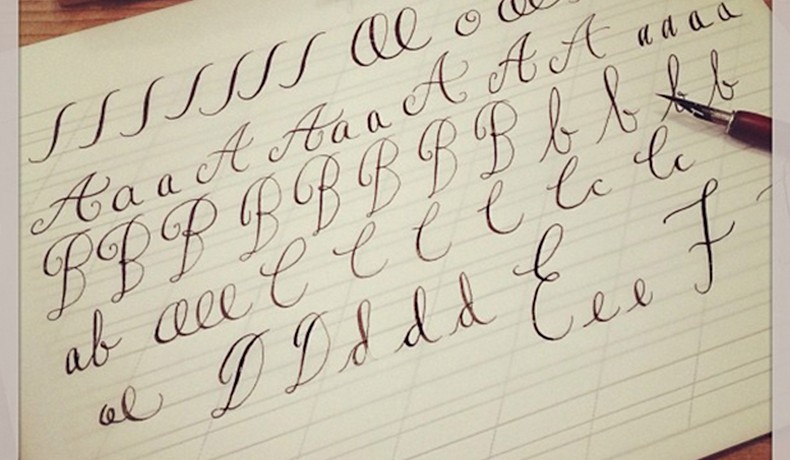 o
A a a A A a a A A A a a a a
B B B B B B B B b b b b
ab C C C C C c C c
D D d d d E e e F